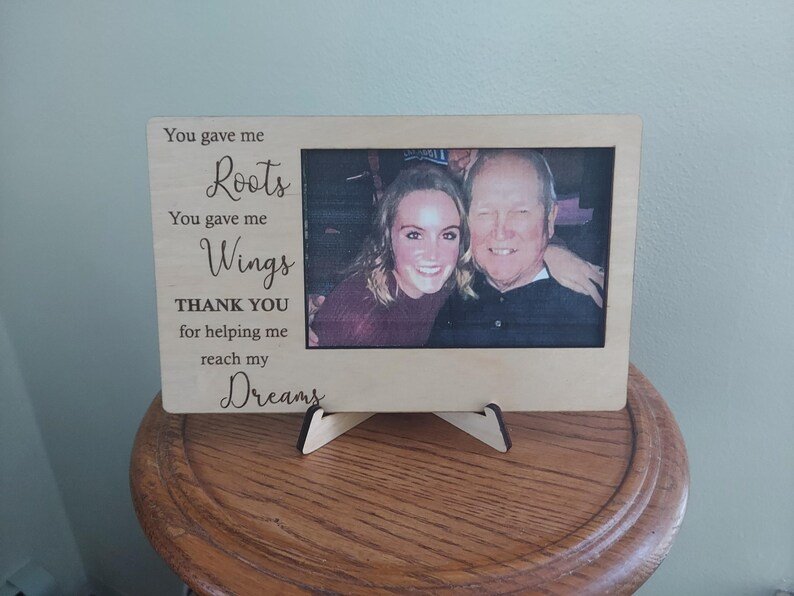 You gave me
Roots
You gave me
Wings
THANK YOU
for helping me
reach my
Dreams